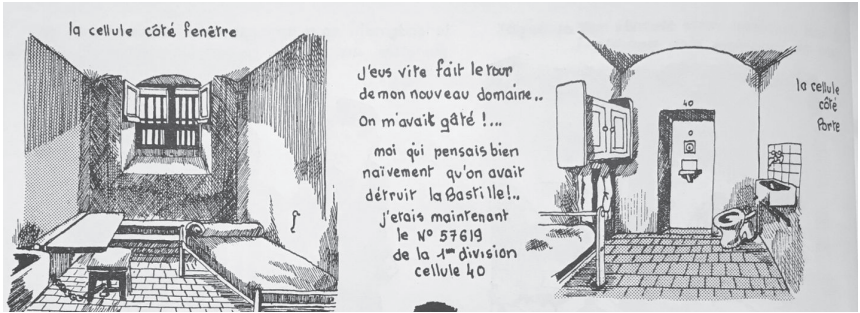 la cellule côté fenêtre
j'eus vite fait le tour
de mon nouveau domaine..
On m'avait gâté !...
moi qui pensais bien
naïvement qu'on avait
détruit la Bastille!..
j'étais maintenant
le N° 57619
de la 1ère division
cellule 40
40
la cellule
côté
porte